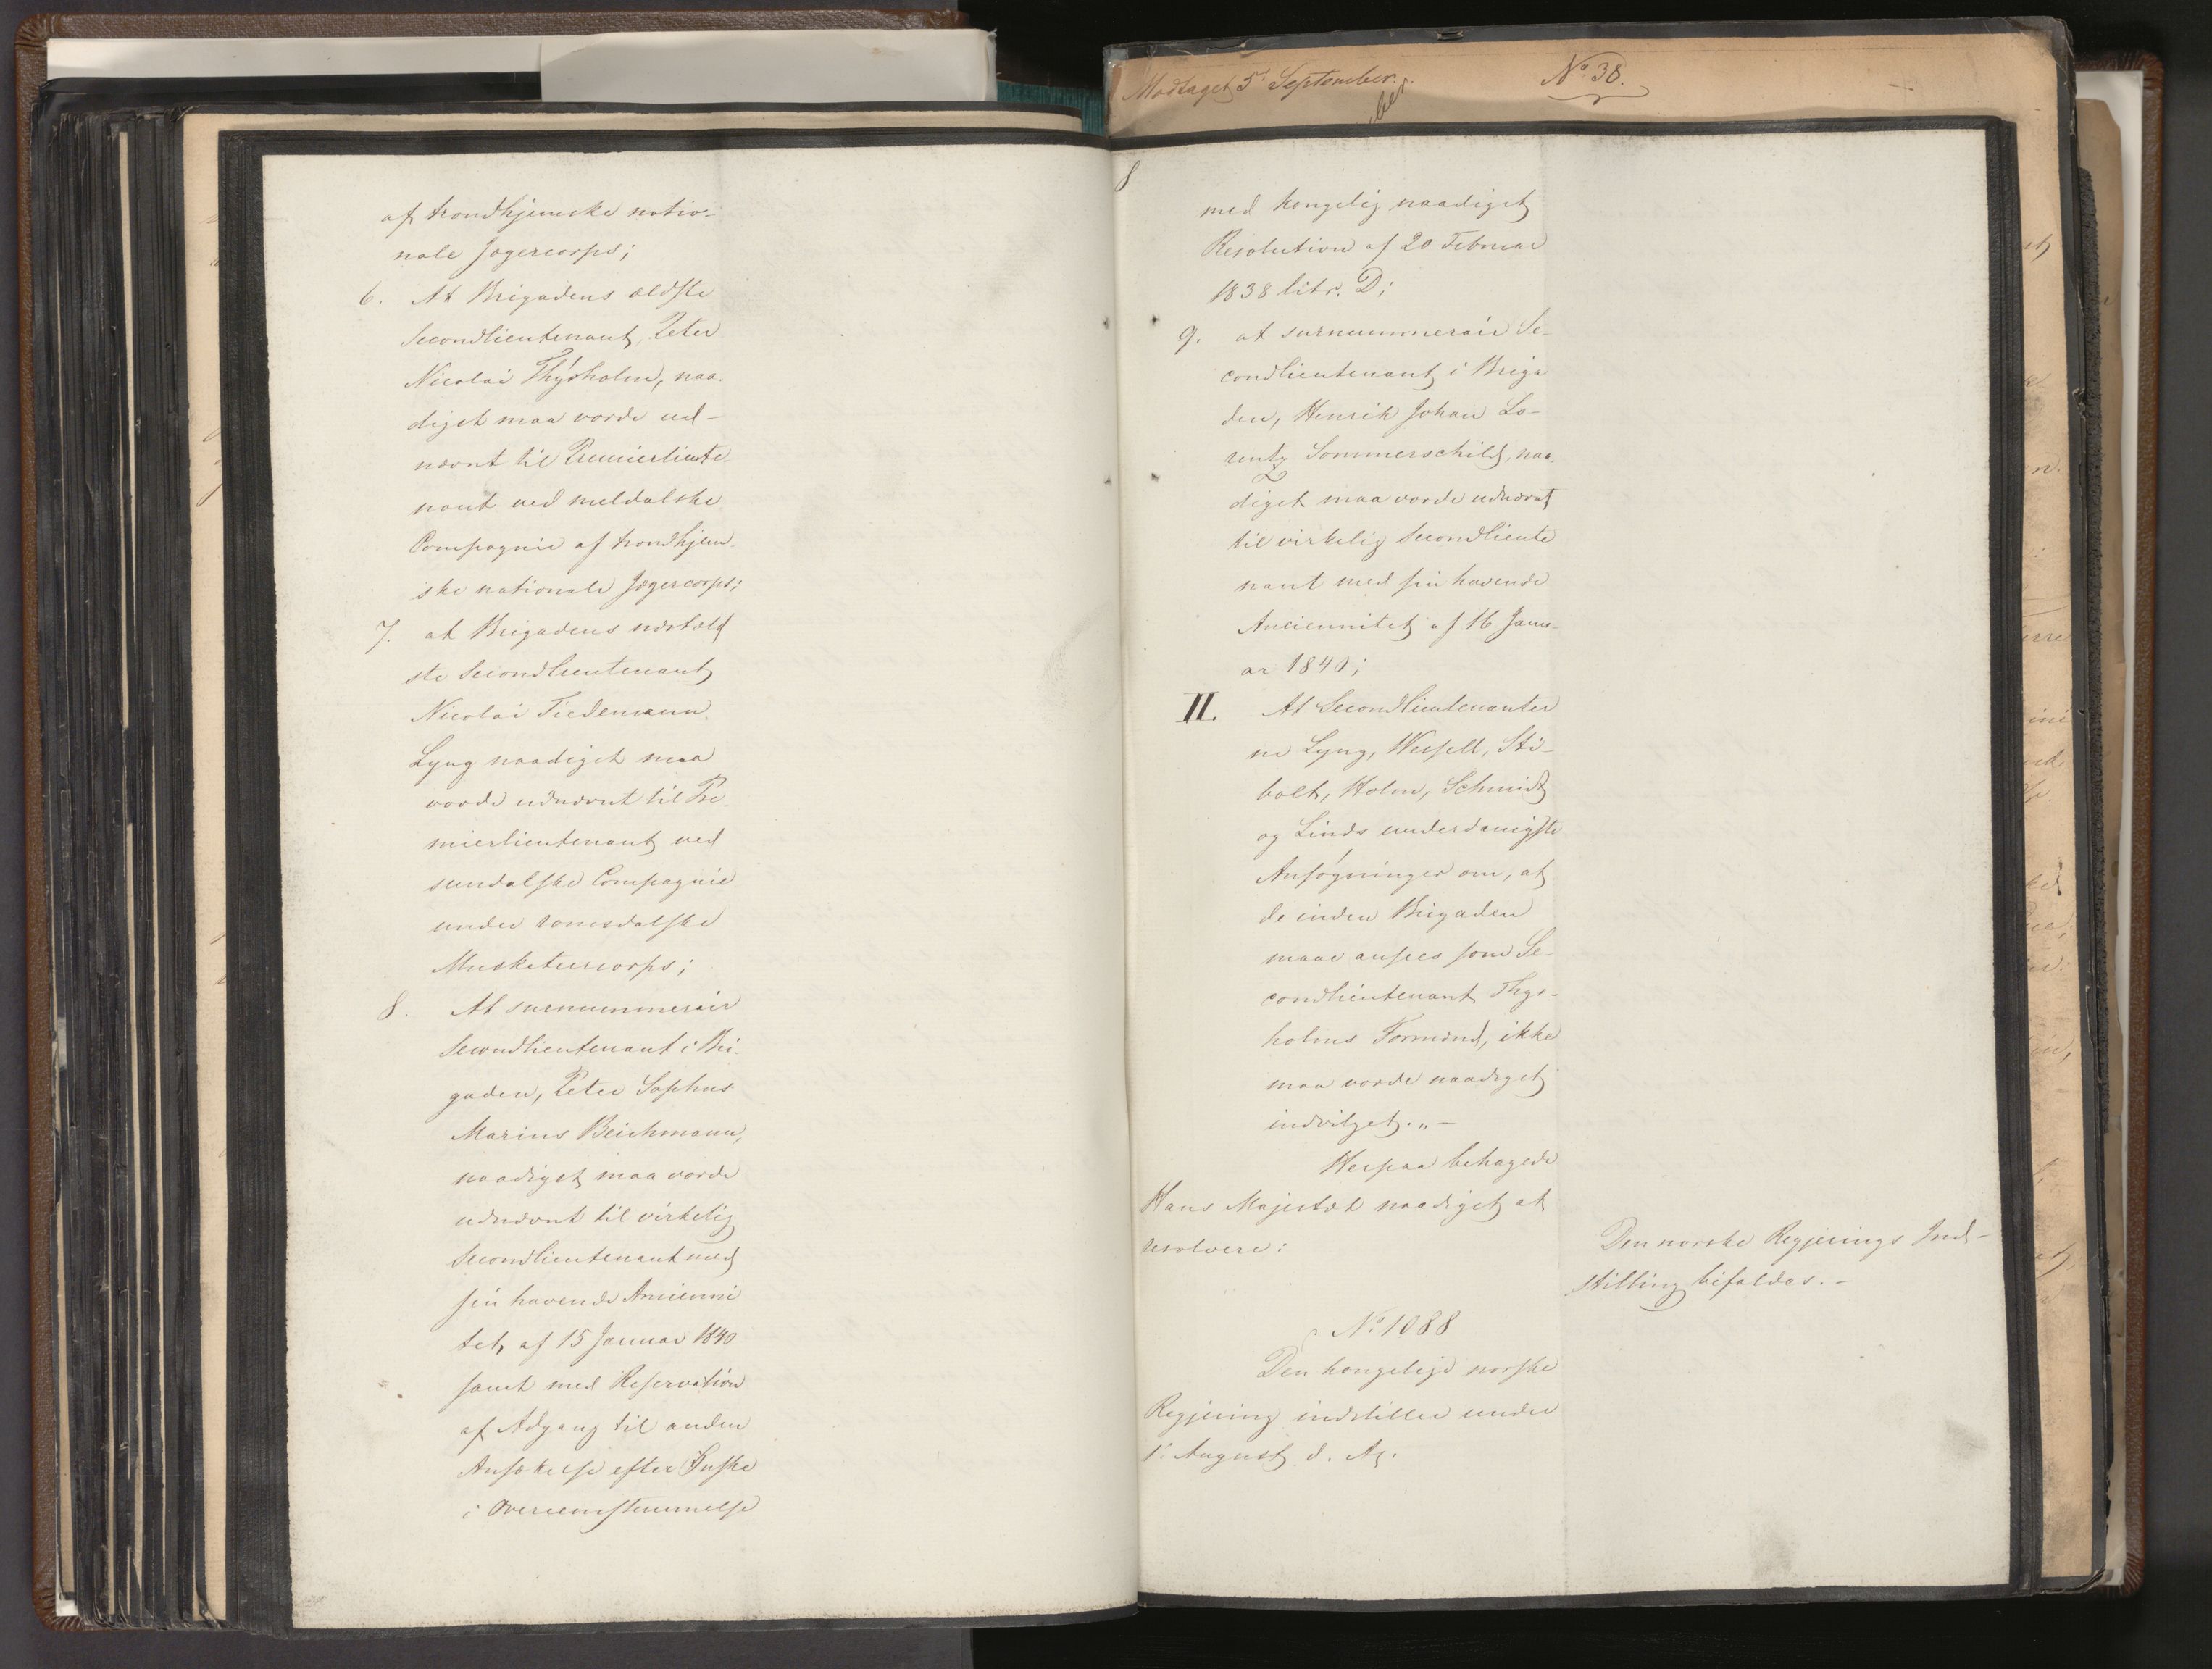 af trondhjemske natio-
nale Jægercorps;
6. At Brigadens ældste
Secondlieutenant, Peter
Nicolai Thysholm, naa-
digst maa vorde ud-
nævnt til Premierlieute-
nant ved meldalske
Compagnie af trondhjem-
ske nationale Jægercorps;
7. at Brigadens næstæld
ste Secondlieutenant
Nicolai Tiedemann
Lyng naadigst maa
vorde udnævnt til Pre-
mierlieutenant ved
sundalske Compagnie
under romsdalske
Musketeercorps;
8. At surnummerair
Secondlieutenant i Bri-
gaden, Peter Sophus
Marius Beichmann,
naadigst maa vorde
udnævnt til virkelig
Secondlieutenant med
sin havende Ancienni
tet af 15 Januar 1840
samt med Reservation
af Adgang til anden
Ansættelse efter Ønske
i Overeensstemmelse
Modtaget 5t September.
No 38.
ber
8
med kongelig naadigst
Resolution af 20 Februar
1838 litr. D;
9. at surnummerair Se-
condlieutenant i Briga
den, Henrik Johan Lo-
rentz Sommerschild, naa-
digst maa vorde udnævnt
til virkelig Secondlieute
nant med sin havende
Anciennitet af 16 Janu-
ar 1840;
II. At Secondlieutenanter
ne Lyng, Wessell, Sti-
bolt, Holm, Schmidt
og Linds underdanigste
Ansøgninger om, at
de inden Brigaden
maae ansees som Se-
condlieutenant Thys-
holms Formænd, ikke
maa vorde naadigst
indvilget." —
Herpaa behagede
Hans Majestæt naadigst at
resolvere:
Den norske Regjerings Ind-
stilling bifaldes. —
No 1088
Den kongelige norske
Regjering indstiller under
1t August d. A.